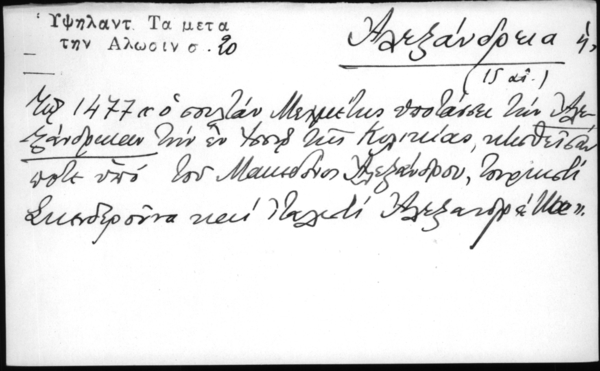 Ὑψηλαντ. Τα μετα
την Αλωσιν σ. 20
Ἀλεξάνδρεια ἡ
(15 αἰ.)
Τῷ 1477 ὁ σουλτάν Μεχμέτης ὑποτάσσει τὴν Ἀλε-
ξάνδρειαν τὴν ἐν τῆς Κιλικίας, κτισθεῖσαν
ποτέ ὑπό τοῦ Μακεδόνος Ἀλεξάνδρου, τουρκιστί
Σκενδεροῦνα καί Ἰταλιστί Ἀλεξανδρέττα".